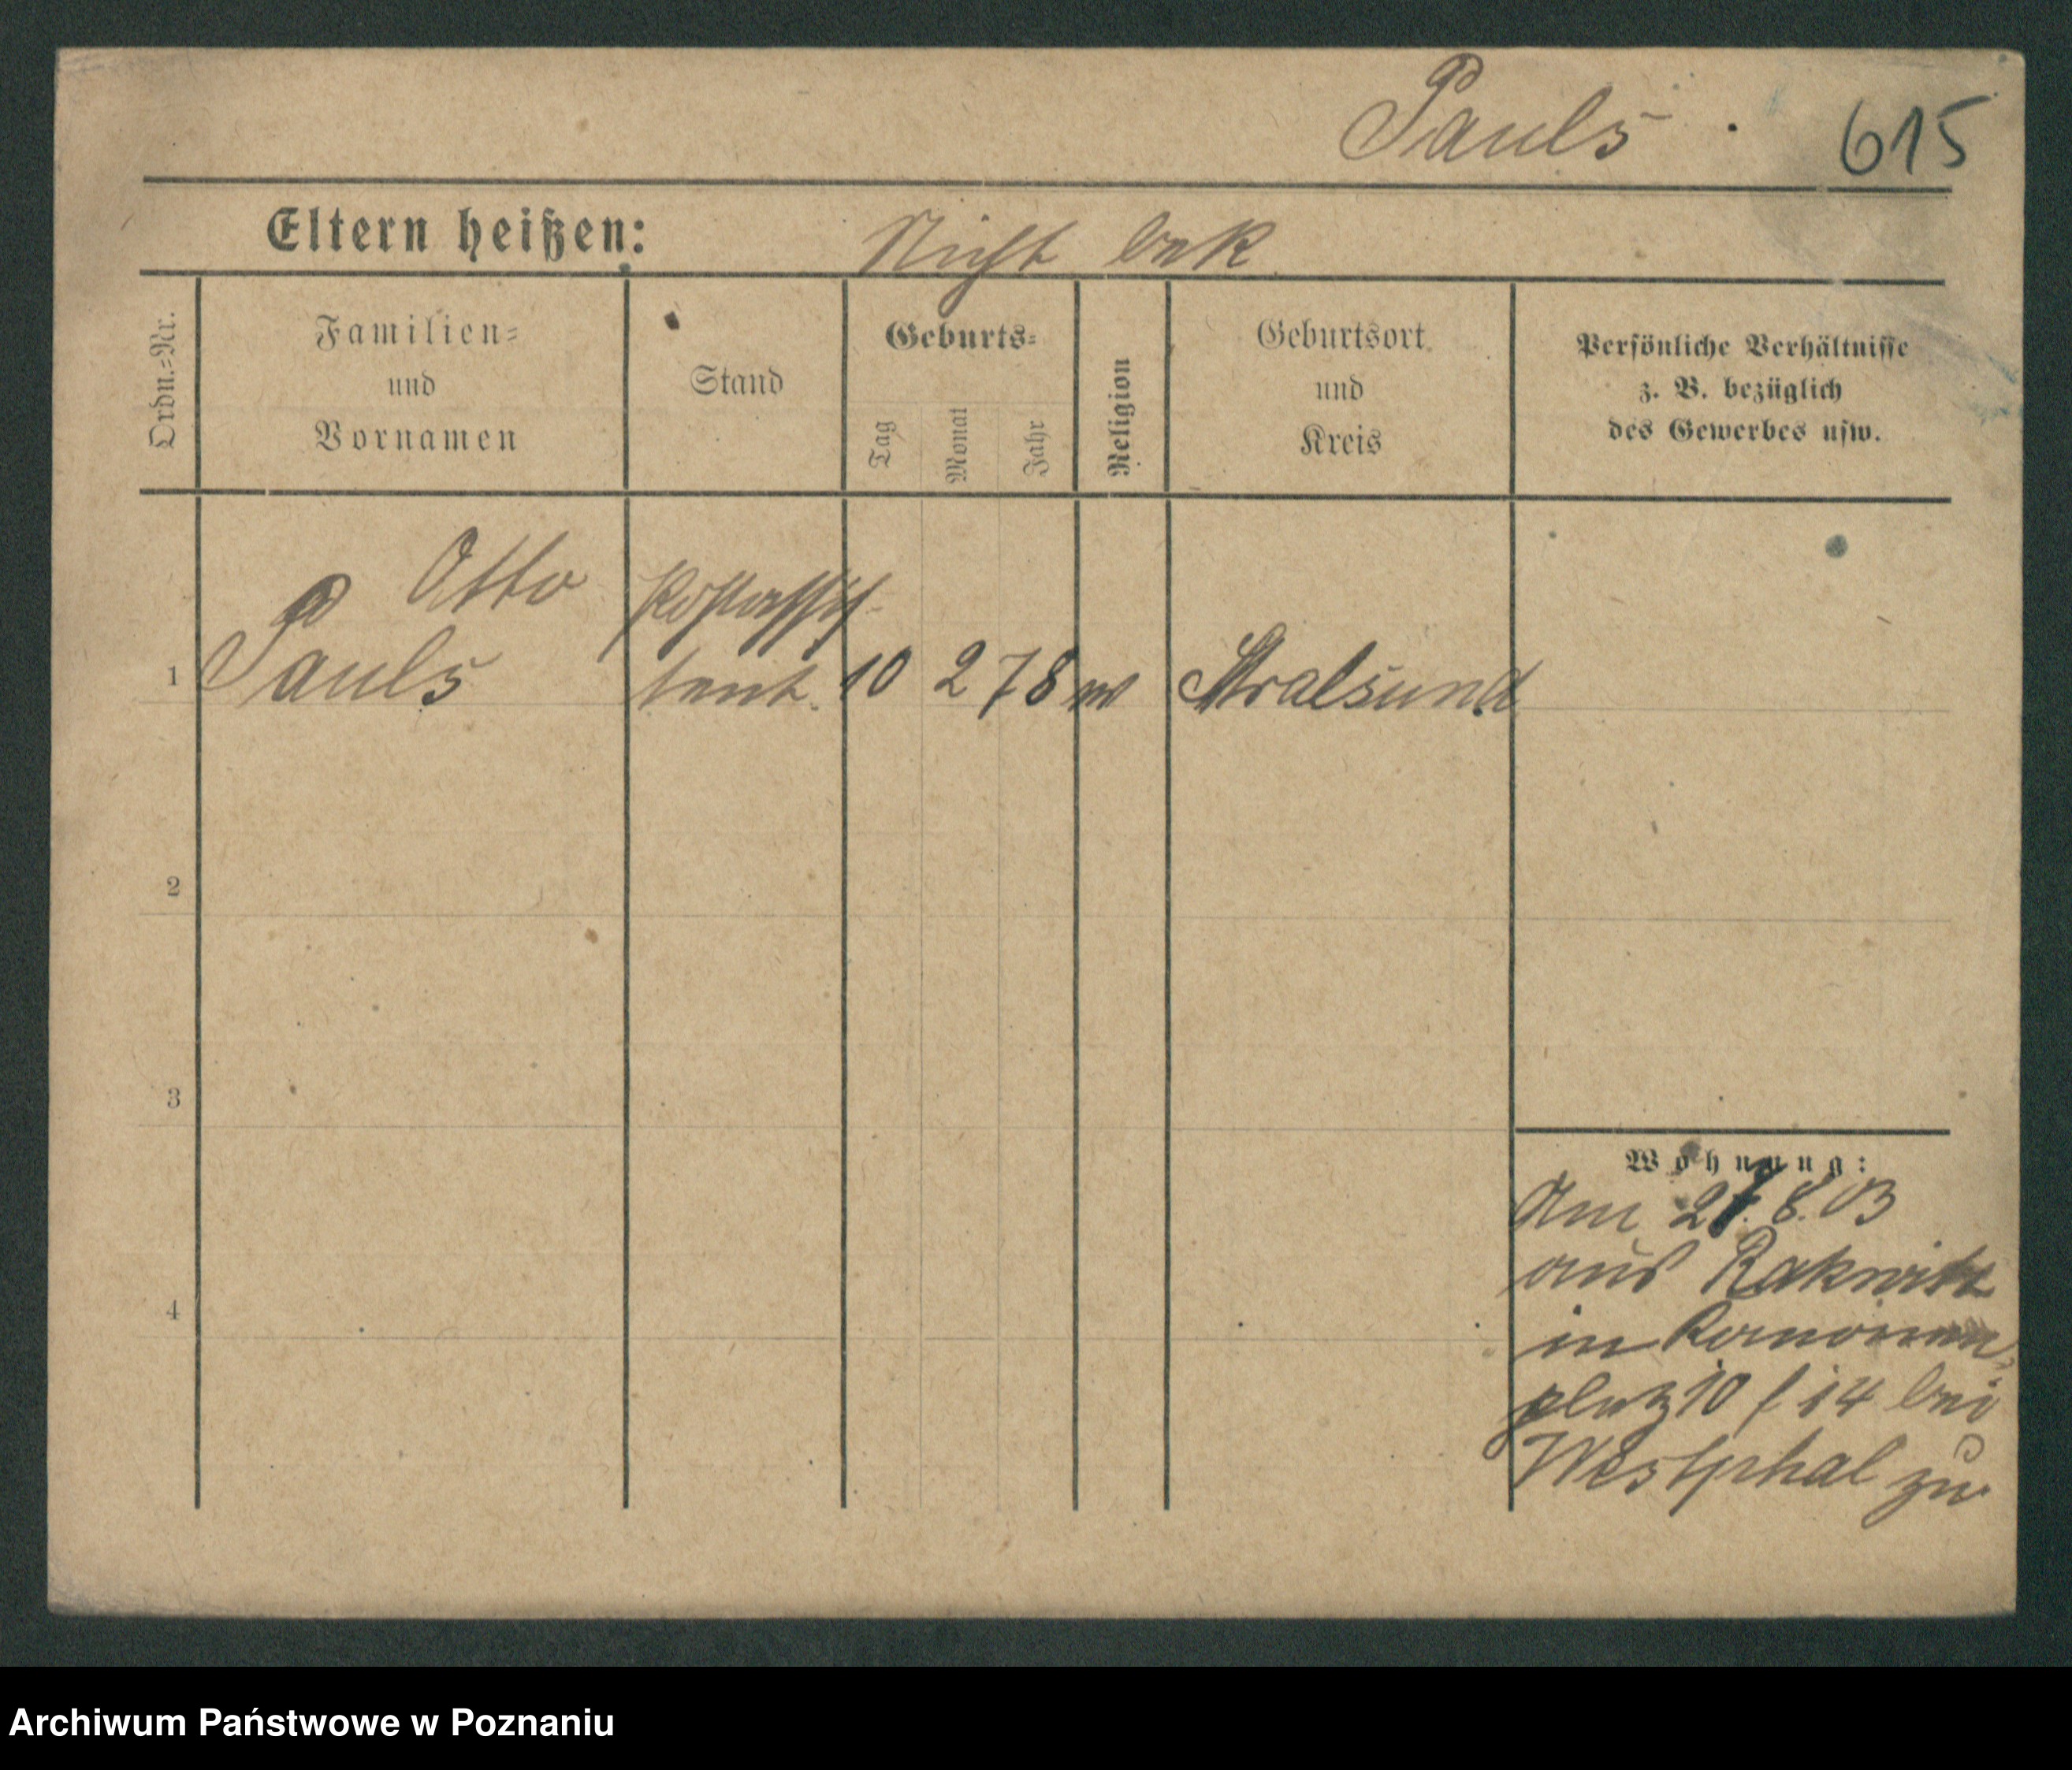 Pauls 615
Eltern heißen: Nicht bek
Ordn.=Nr.
Familien=
und
Vornamen
Stand
Geburts=
Tag
Monat
Jahr
Religion
Geburtsort
und
Kreis
Persönliche Verhältnisse
z. B. bezüglich
des Gewerbes usw.
Otto
Postassis-
1 Pauls tent. 10 2 78 Stralsund
2
3
4
Wohnung:
Am 27.8.03
aus Rakwitz
in
platz 10 f 14 bei
Westphal zu
Archiwum Państwowe w Poznaniu